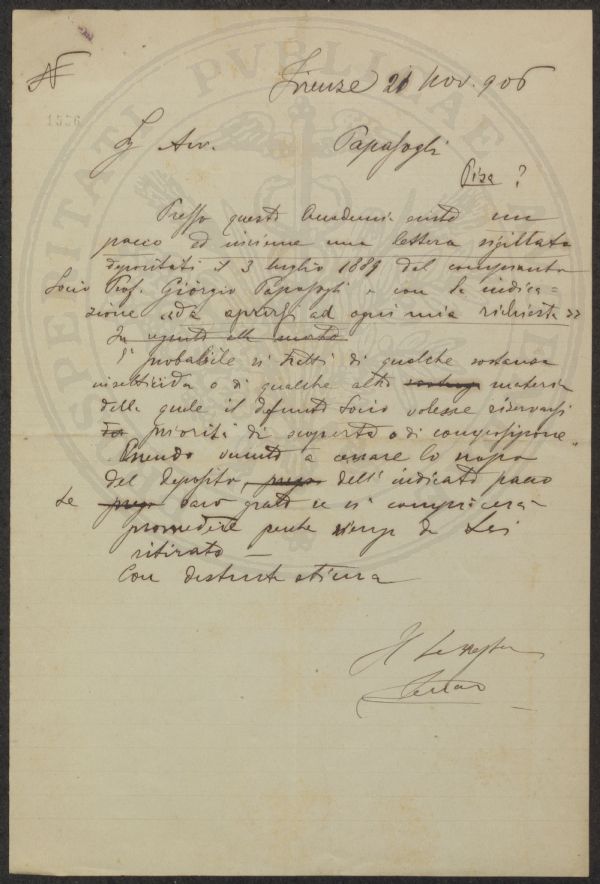 Firenze 21 Nov. 906
1526
Sig Avv. Papasogli
Pisa ?
Presso questa Accademia esiste un
pacco ed insieme una lettera sigillata
depositati il 3 luglio 1889 dal compianto
Socio Prof. Giorgio Papasogli e con la indica=
zione "da aprirsi ad ogni mia richiesta"
In seguito alla morte
E' probabile si tratti di qualche sostanza
insetticida o di qualche altra materia
della quale il defunto Socio volesse riservarsi
priorità di scoperta o di composizione.
Essendo venuto a cessare lo scopo
del deposito, dell' indicato pacco
Le sarò grato se si compiacerà
provvedere perché venga da Lei
ritirato —
Con distinta stima
Il Segretario
PROSPERITATI PVBLICAE